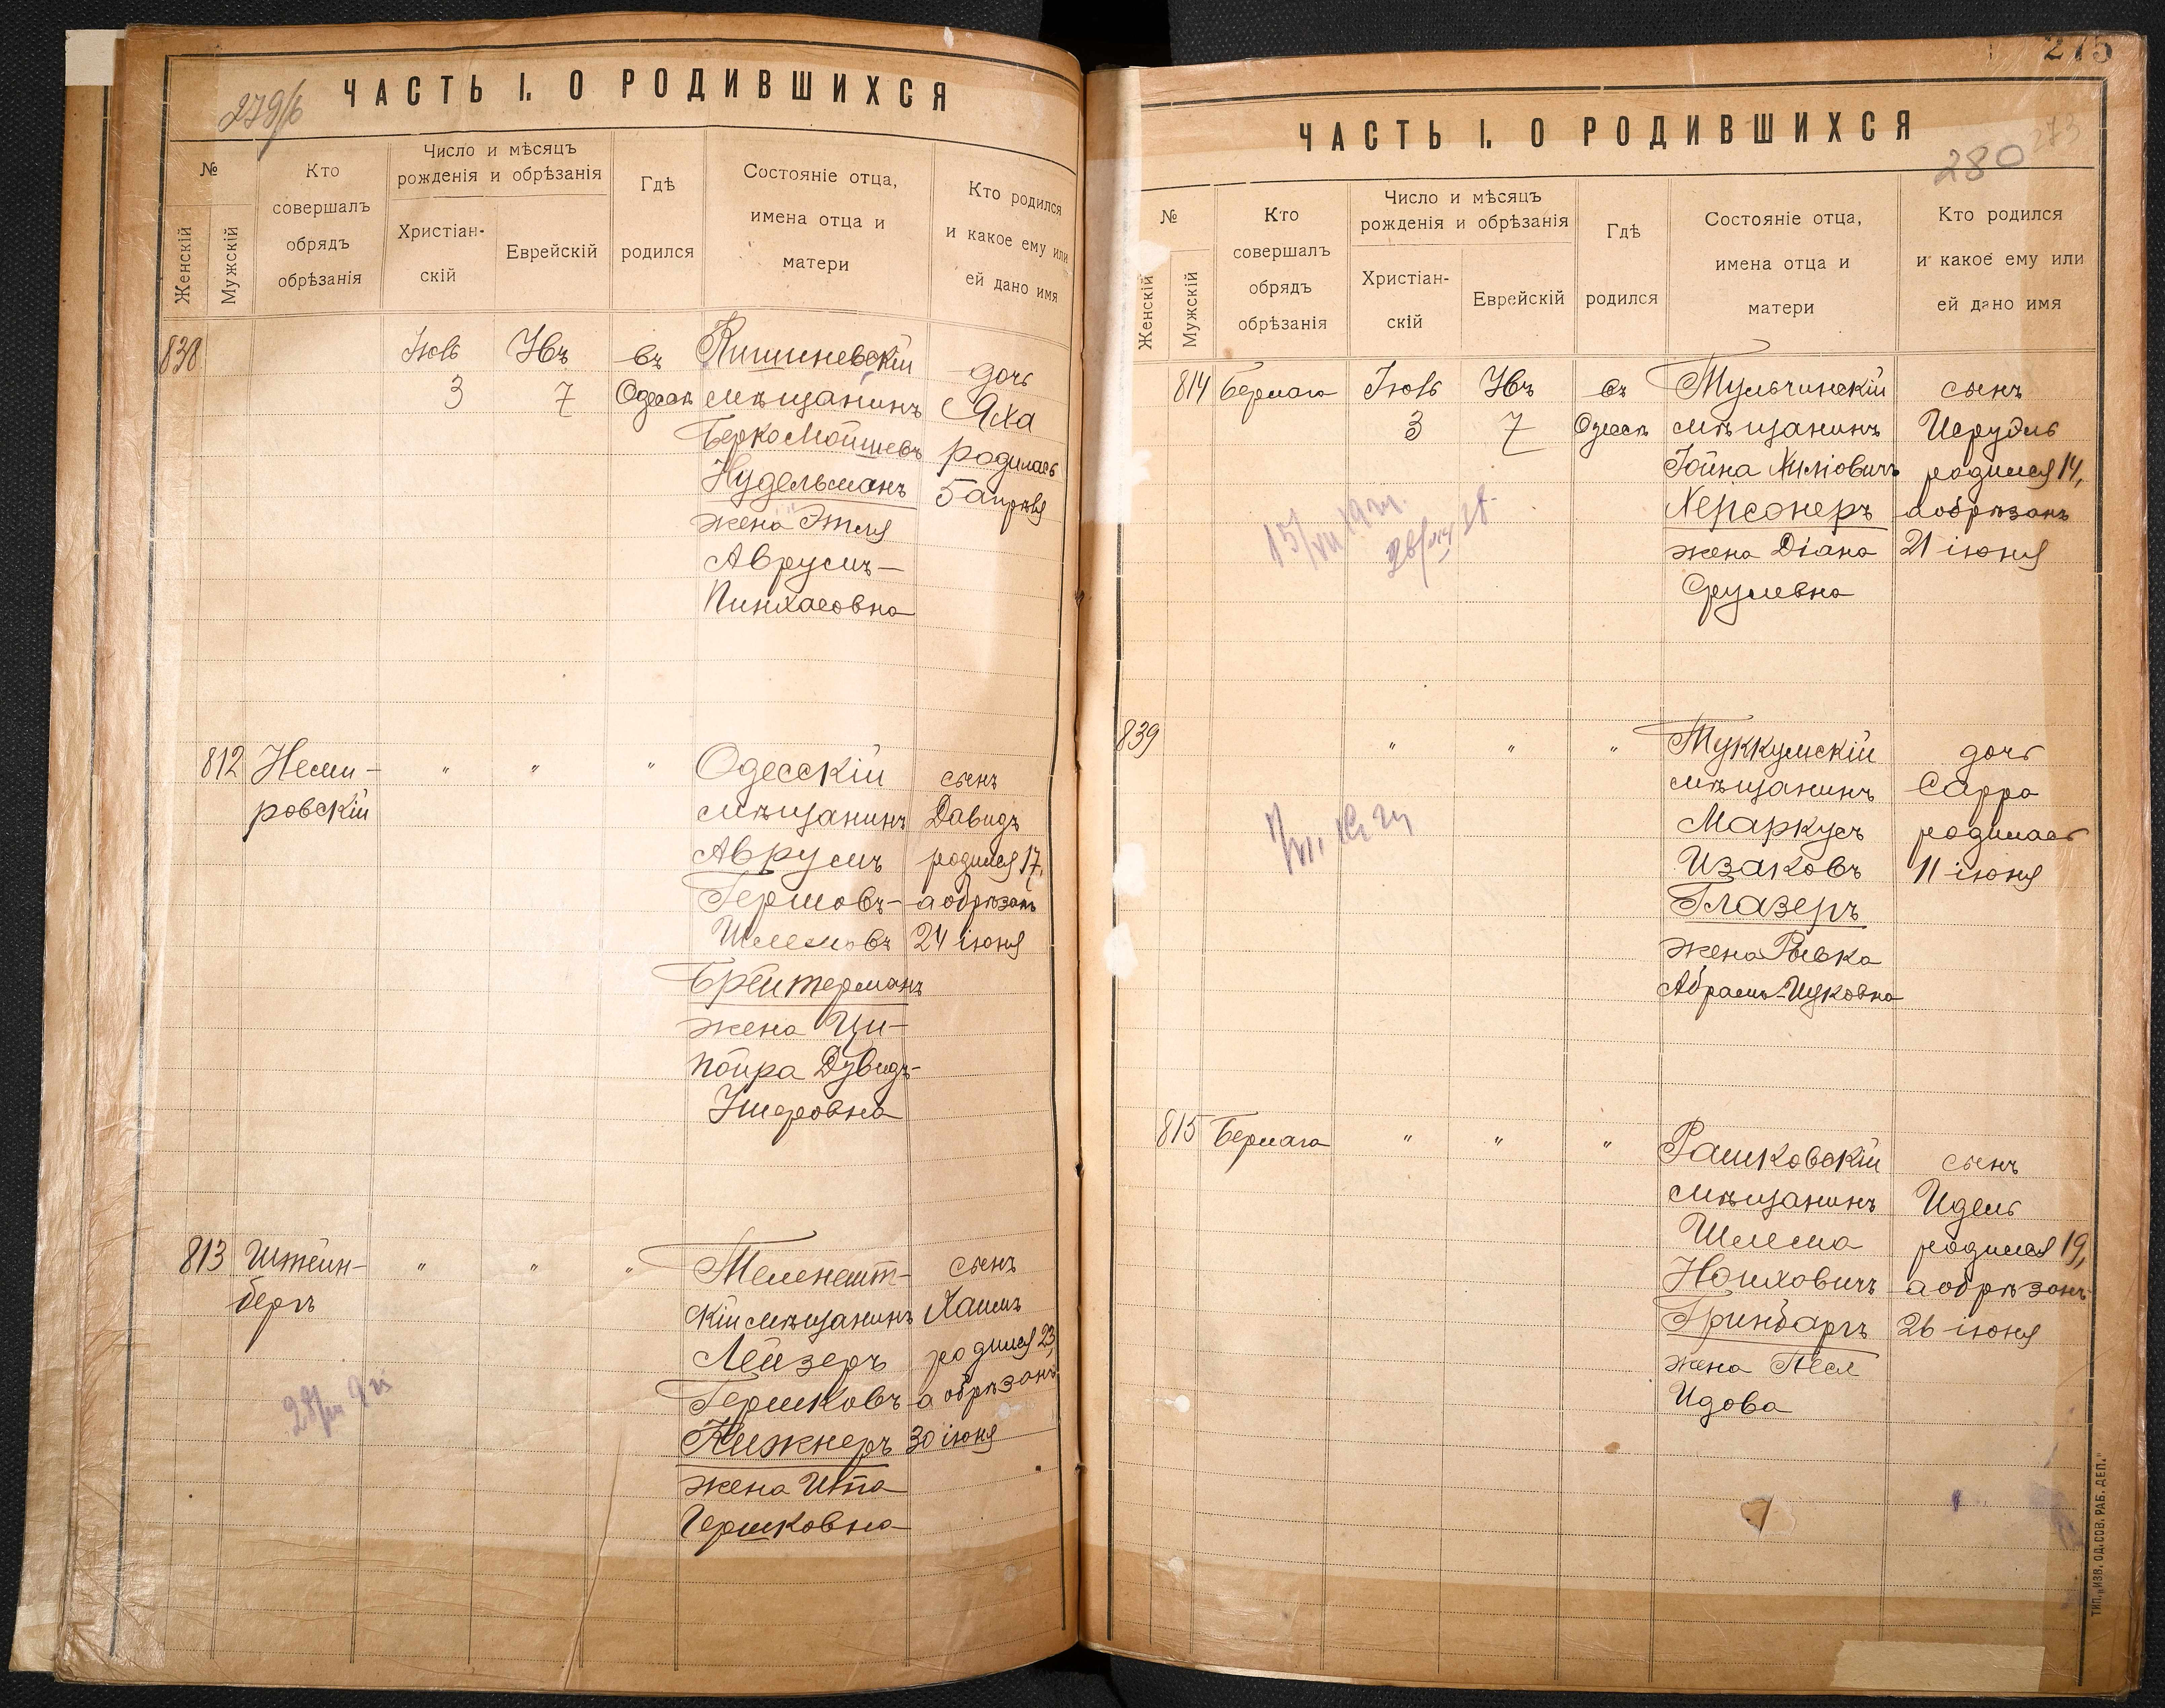 279/б
ЧАСТЬ I. О РОДИВШИХСЯ
№
Женскій
Мужскій
Кто
совершалъ
обрядъ
обрѣзанія
Число и мѣсяцъ
рожденія и обрѣзанія
Христіан-
скій
Еврейскій
Гдѣ
родился
Состояніе отца,
имена отца и
матери
Кто родился
и какое ему или
ей дано имя
838
3
7
въ
Одессѣ
Кишиневскій
мѣщанинъ
Берко Мойшевъ
Нудельманъ
жена Этля
Аврумъ-
Пинхасовна
дочь
Яха
родилась
5 апрѣля
812
Неми-
ровскій
"
"
"
Одесскій
мѣщанинъ
Аврумъ
Гершовъ-
Шлемовъ
Брейтерманъ
жена Ци-
пойра Дувидъ-
Ушеровна
сынъ
Давидъ
родился 17,
а обрѣзанъ
24 іюня
813
Штейн-
бергъ
"
"
"
Теленешт-
скій мѣщанинъ
Лейзеръ
Гершковъ
Нижнеръ
жена Ита
Гершковна
сынъ
Хаимъ
родился 23,
а обрѣзанъ
30 іюня
275
ЧАСТЬ I. О РОДИВШИХСЯ
280
273
№
Женскій
Мужскій
Кто
совершалъ
обрядъ
обрѣзанія
Число и мѣсяцъ
рожденія и обрѣзанія
Христіан-
скій
Еврейскій
Гдѣ
родился
Состояніе отца,
имена отца и
матери
Кто родился
и какое ему или
ей дано имя
814
Бермага
3
7
въ
Одессѣ
Тульчинскій
мѣщанинъ
Іойна
Херсонеръ
жена Діана
Срулевна
сынъ
родился 14,
а обрѣзанъ
21 іюня
839
"
"
"
Туккумскій
мѣщанинъ
Маркусъ
Изаковъ
Глазеръ
жена Ривка
Абрамъ-Ицковна
дочь
Сарра
родилась
11 іюня
815
Бермага
"
"
"
Рашковскій
мѣщанинъ
Шлема
Нойховичъ
Гринбаргъ
жена Песя
Идова
сынъ
Идель
родился 19,
а обрѣзанъ
26 іюня
ТИП. „ИЗВ. ОД. СОВ. РАБ. ДЕП."